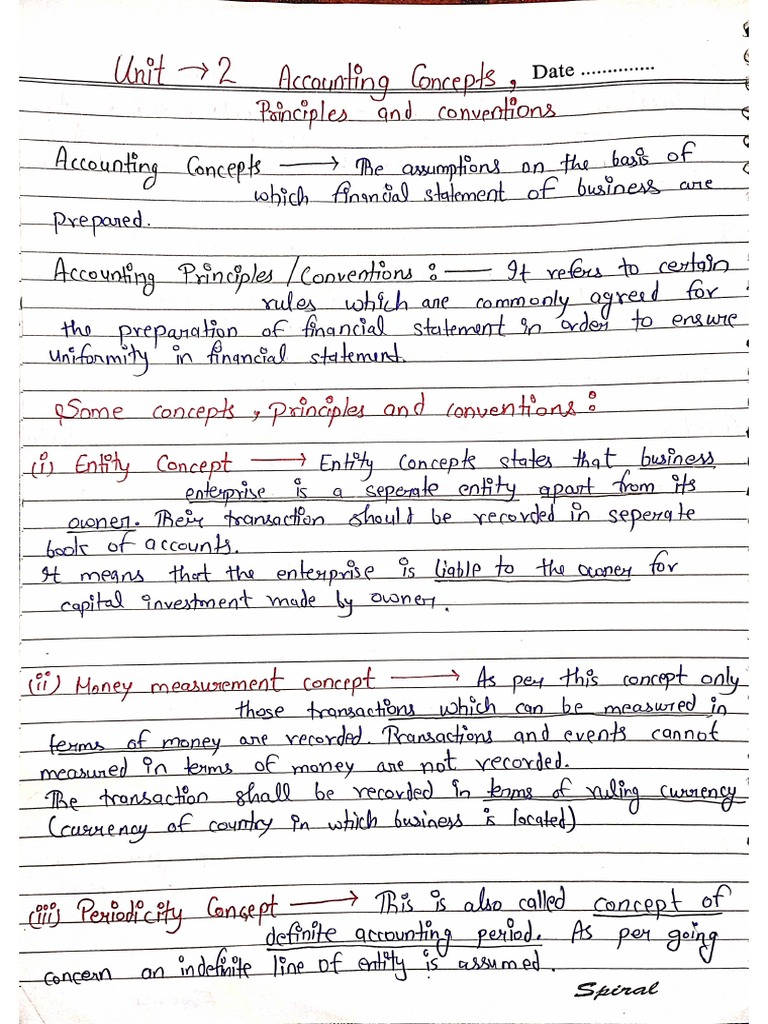 Unit → 2 Accounting Concepts, Date ..............
Principles and conventions
Accounting Concepts ⟶ The assumptions on the basis of
which financial statement of business are
prepared.
Accounting Principles / Conventions : — It refers to certain
rules which are commonly agreed for
the preparation of financial statement in order to ensure
uniformity in financial statement.
Some concepts, principles and conventions :
(i) Entity Concept ⟶ Entity Concepts states that business
enterprise is a seperate entity apart from its
owner. Their transaction should be recorded in seperate
book of accounts.
It means that the enterprise is liable to the owner for
capital investment made by owner.
(ii) Money measurement concept ⟶ As per this concept only
those transactions which can be measured in
terms of money are recorded. Transactions and events cannot
measured in terms of money are not recorded.
The transaction shall be recorded in terms of ruling currency
(currency of country in which business is located)
(iii) Periodicity Concept ⟶ This is also called concept of
definite accounting period. As per going
concern an indefinite line of entity is assumed.
Spiral